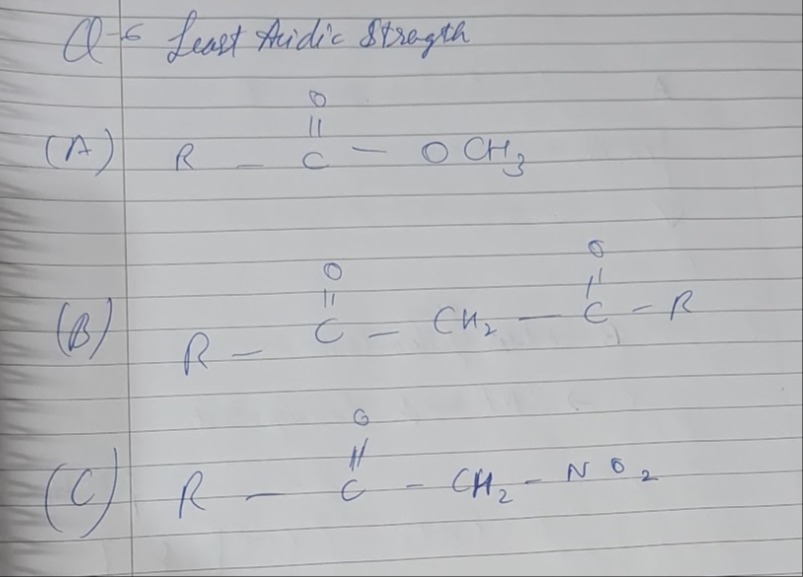 Q-6 Least Acidic Strength
O
||
(A) R - C - OCH3
O O
|| ||
(B) R - C - CH2 - C - R
O
||
(C) R - C - CH2 - NO2